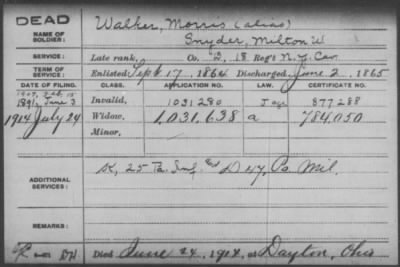 DEAD
NAME OF SOLDIER:
Walker, Morris (alias)
Snyder, Milton W
SERVICE:
Late rank, Co. 2, 18 Reg't N.Y. Cav
TERM OF SERVICE:
Enlisted Sept 17, 1864 Discharged June 2, 1865
DATE OF FILING. CLASS. APPLICATION NO. CERTIFICATE NO.
1891, June 3 Invalid, 1031280 877288
1914 July 24 Widow, 1,031,638 a 784,050
Minor,
ADDITIONAL SERVICES:
K, 25 Pa. Inf. Co. Mil.
REMARKS:
Died June 24, 1914, at Dayton, Ohio